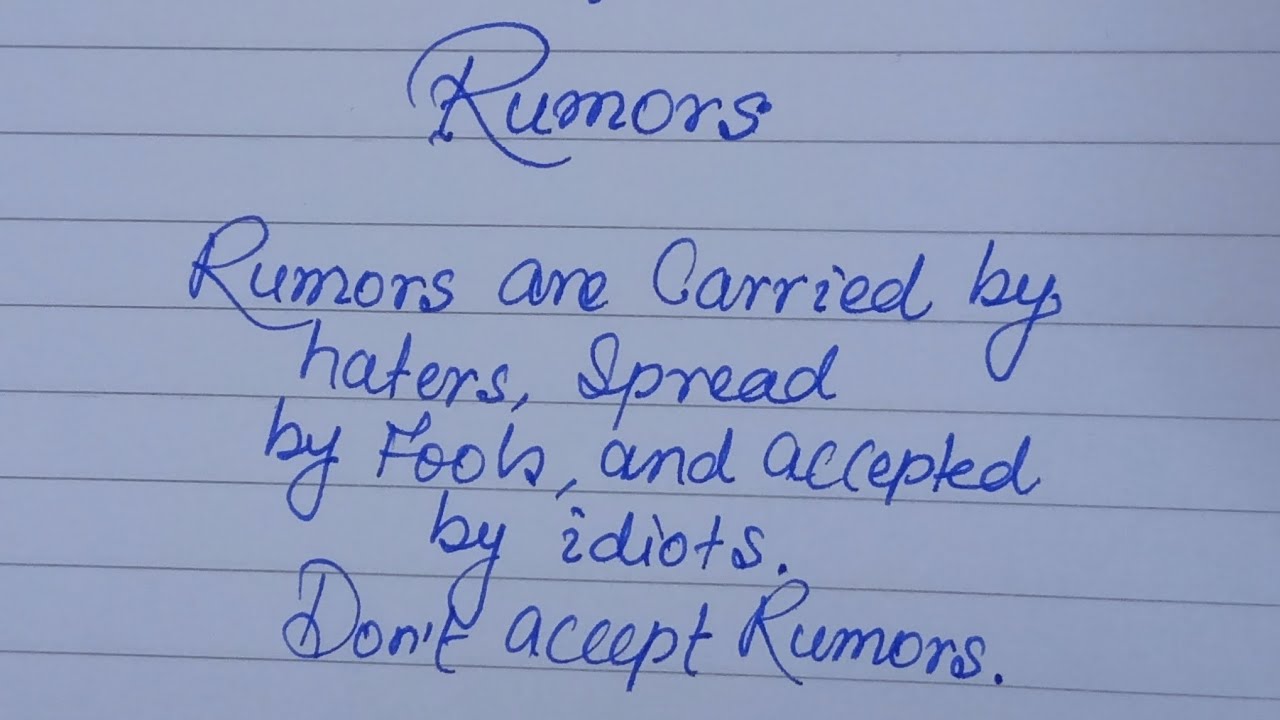 Rumors
Rumors are Carried by
haters, Spread
by Fools, and accepted
by idiots.
Don't accept Rumors.